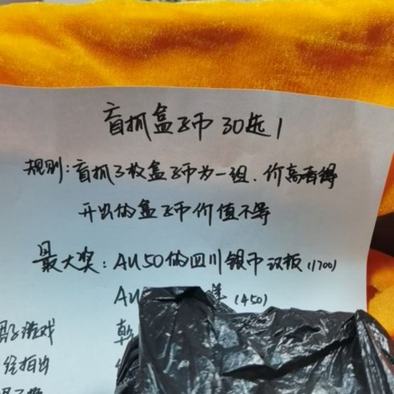 盲抓盒子币 30选1
规则:盲抓3枚盒子币为一组、价高者得
开出的盒子币价值不等
最大奖:AU50的四川银币汉板(1700)
AU
(450)
子游戏
乾
经拍出